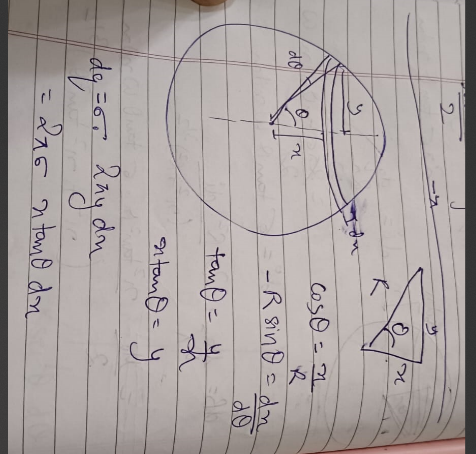 2
-x
dθ
y
θ
x
dx
y
R
θ
x
cosθ = x/R
-R sinθ = dx/dθ
tanθ = y/x
x tanθ = y
dq = σ. 2πy dx
= 2πσ x tanθ dx